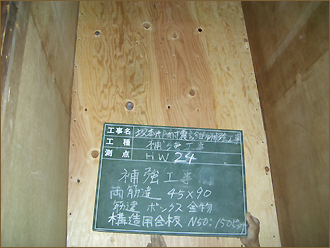 工事名
工種 補強工事
測点 HW24
補強工事
両筋違 45×90
筋違 ボックス金物
構造用合板 N50@150